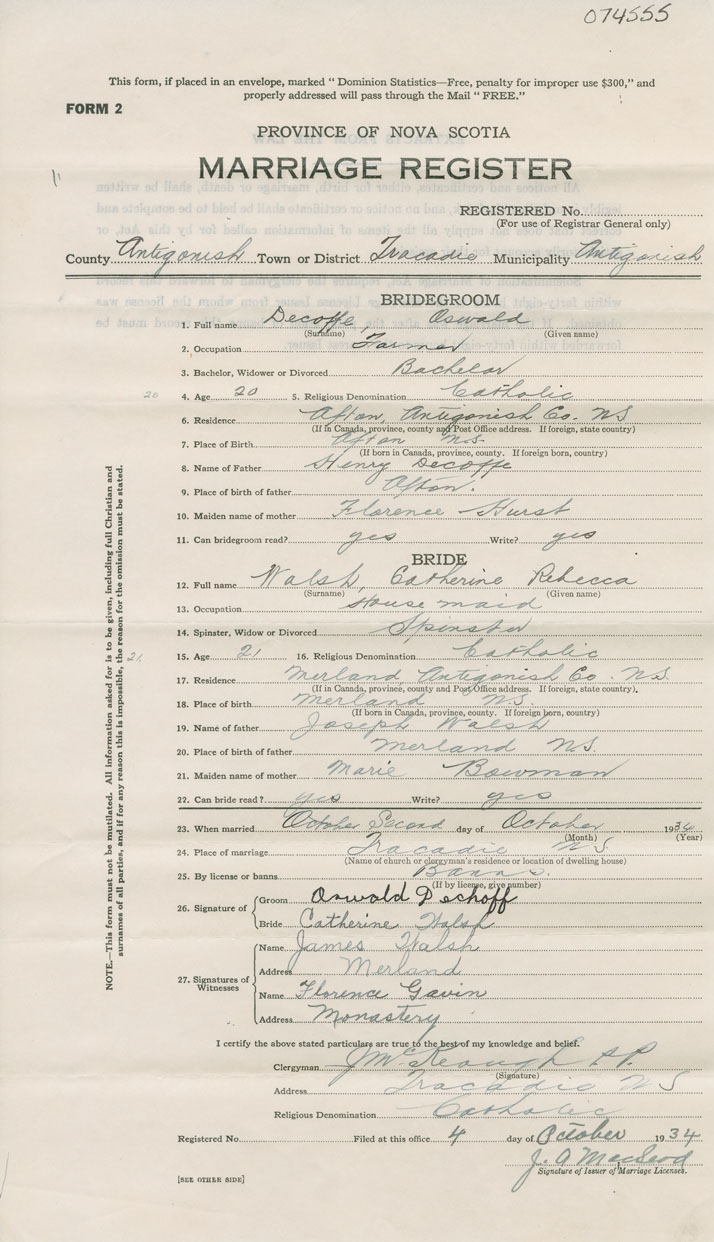 074555
This form, if placed in an envelope, marked " Dominion Statistics—Free, penalty for improper use $300," and
properly addressed will pass through the Mail " FREE."
FORM 2
PROVINCE OF NOVA SCOTIA
MARRIAGE REGISTER
REGISTERED No.
(For use of Registrar General only)
County Antigonish Town or District Tracadie Municipality Antigonish
BRIDEGROOM
1. Full name Decoffe, Oswald
(Surname) (Given name)
2. Occupation Farmer
3. Bachelor, Widower or Divorced Bachelor
20 4. Age 20 5. Religious Denomination Catholic
6. Residence Afton, Antigonish Co. NS
(If in Canada, province, county and Post Office address. If foreign, state country)
7. Place of Birth Afton N.S.
(If born in Canada, province, county. If foreign born, country)
8. Name of Father Henry Decoffe
9. Place of birth of father Afton.
10. Maiden name of mother Florence Hurst
11. Can bridegroom read? yes Write? yes
BRIDE
12. Full name Walsh, Catherine Rebecca
(Surname) (Given name)
13. Occupation House maid
14. Spinster, Widow or Divorced Spinster
21. 15. Age 21 16. Religious Denomination Catholic
17. Residence Merland Antigonish Co. N.S.
(If in Canada, province, county and Post Office address. If foreign, state country).
18. Place of birth Merland N.S.
(If born in Canada, province, county. If foreign born, country)
19. Name of father Joseph Walsh
20. Place of birth of father Merland NS.
21. Maiden name of mother Marie Bowman
22. Can bride read? yes Write? yes
23. When married October Second day of October 1934
(Month) (Year)
24. Place of marriage Tracadie NS.
(Name of church or clergyman's residence or location of dwelling house)
25. By license or banns Banns.
(If by license, give number)
26. Signature of
Groom Oswald Dechoff
Bride Catherine Walsh
27. Signatures of Witnesses
Name James Walsh
Address Merland
Name Florence Gavin
Address Monastery
I certify the above stated particulars are true to the best of my knowledge and belief.
Clergyman J McKeough P.P.
(Signature)
Address Tracadie NS
Religious Denomination Catholic
Registered No. Filed at this office 4 day of October 1934
J. A MacLeod
Signature of Issuer of Marriage Licenses.
[SEE OTHER SIDE]
NOTE.—This form must not be mutilated. All information asked for is to be given, including full Christian and
surnames of all parties, and if for any reason this is impossible, the reason for the omission must be stated.